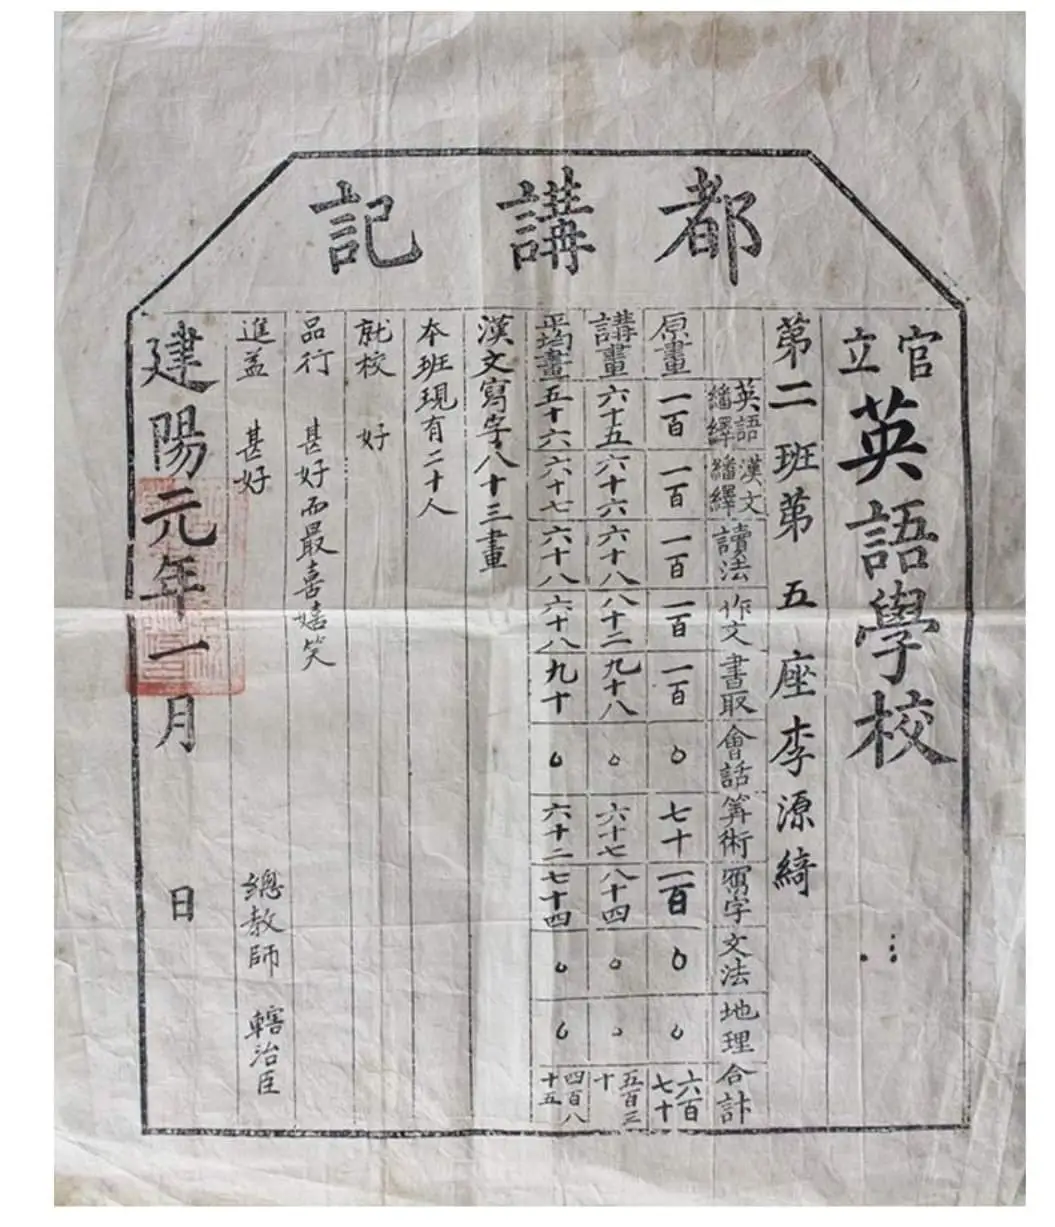 都講記
官立英語學校
第二班第五座李源綺
英語繙繹 漢文繙繹 讀法 作文 書取 會話 筭術 寫字 文法 地理 合計
原畫 一百 一百 一百 一百 一百 〇 七十 一百 〇 〇 六百七十
講畫 六十五 六十六 六十八 八十二 九十八 〇 六十七 八十四 〇 〇 五百三十
平均畫 五十六 六十七 六十八 六十八 九十 〇 六十二 七十四 〇 〇 四百八十五
漢文寫字八十三畫
本班現有二十人
就校 好
品行 甚好而最喜嬉笑
進益 甚好
總教師 轄治臣
建陽元年一月 日